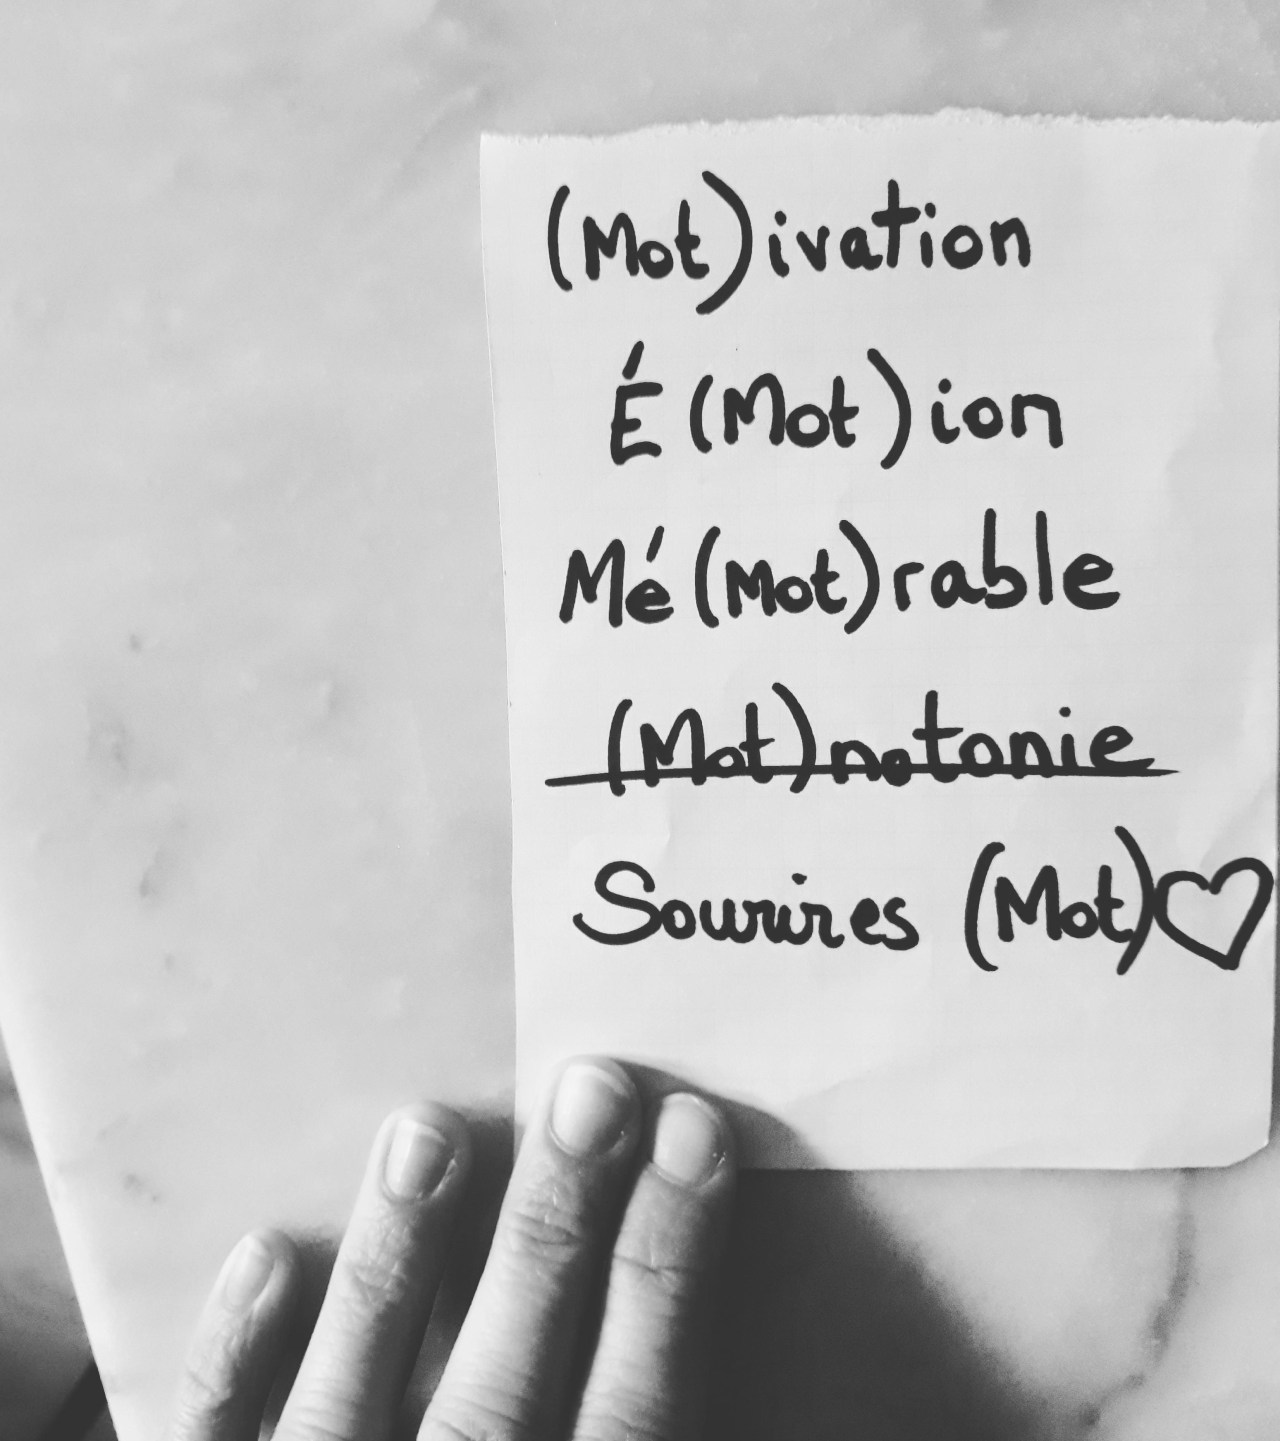 (Mot)ivation
É(Mot)ion
Mé(Mot)rable
(Mot)notonie
Sourires (Mot)♡